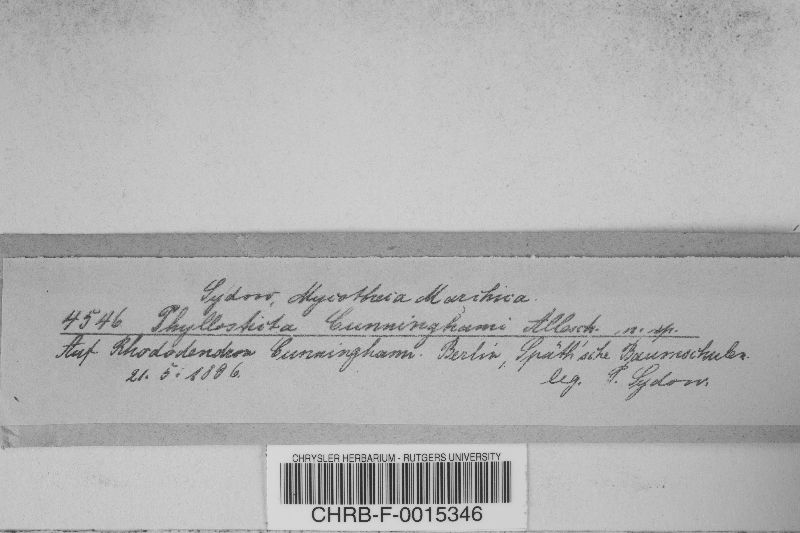 Sydow, Mycotheca Marchica.
4546 Phyllosticta Cunninghami Allesch. n. sp.
Auf Rhododendron Cunninghami. Berlin, Späth'sche Baumschulen
21. 5. 1896. leg. P. Sydow.
CHRYSLER HERBARIUM - RUTGERS UNIVERSITY
CHRB-F-0015346